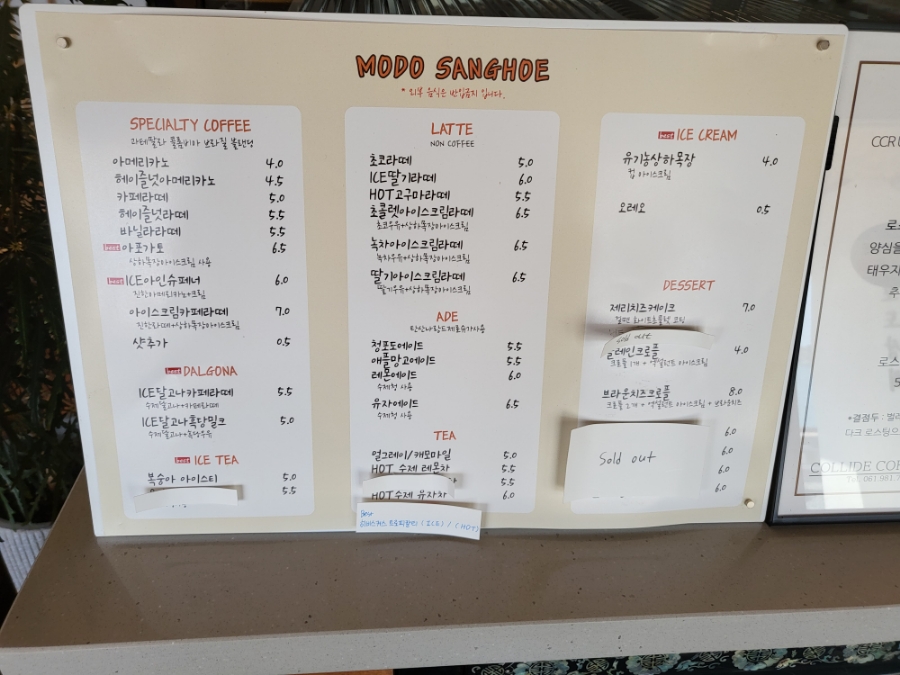 MODO SANGHOE
* 외부 음식은 반입금지 입니다.
SPECIALTY COFFEE
과테말라 콜롬비아 브라질 블랜딩
아메리카노 4.0
헤이즐넛아메리카노 4.5
카페라떼 5.0
헤이즐넛라떼 5.5
바닐라라떼 5.5
best 아포가토 6.5
상하목장아이스크림 사용
best ICE아인슈페너 6.0
진한아메리카노+크림
아이스크림카페라떼 7.0
진한라떼+상하목장아이스크림
샷추가 0.5
best DALGONA
ICE달고나카페라떼 5.5
수제달고나+카페라떼
ICE달고나흑당밀크 5.0
수제달고나+흑당우유
best ICE TEA
복숭아 아이스티 5.0
5.5
LATTE
NON COFFEE
초코라떼 5.0
ICE딸기라떼 6.0
HOT고구마라떼 5.5
초콜렛아이스크림라떼 6.5
초코우유+상하목장아이스크림
녹차아이스크림라떼 6.5
녹차우유+상하목장아이스크림
딸기아이스크림라떼 6.5
딸기우유+상하목장아이스크림
ADE
청포도에이드 5.5
애플망고에이드 5.5
레몬에이드 6.0
수제청 사용
유자에이드 6.5
수제청 사용
TEA
얼그레이/캐모마일 5.0
HOT 수제 레몬차 5.5
5.5
HOT수제 유자차 6.0
New
(ICE) / (HOT)
best ICE CREAM
유기농상하목장 4.0
컵 아이스크림
오레오 0.5
DESSERT
제리치즈케이크 7.0
Sold out
플레인크로플 4.0
크로플 1개 + 엑설런트 아이스크림
브라운치즈크로플 8.0
크로플 2개 + 엑설런트 아이스크림 + 브라운치즈
6.0
Sold out
6.0
6.0
CCRU
로스
양심을
태우지
로스
*결점두 : 벌레
다크 로스팅으
COLLIDE COF